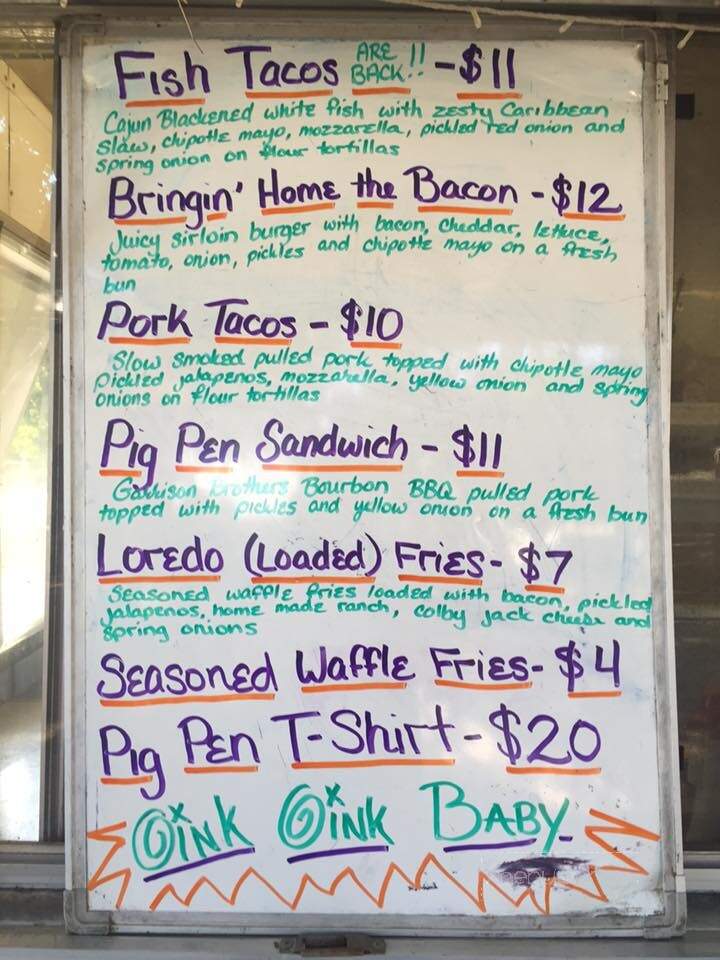 Fish Tacos ARE BACK!! - $11
Cajun Blackened white fish with zesty Caribbean
slaw, chipotle mayo, mozzarella, pickled red onion and
spring onion on flour tortillas
Bringin' Home the Bacon - $12
Juicy sirloin burger with bacon, cheddar, lettuce,
tomato, onion, pickles and chipotle mayo on a fresh
bun
Pork Tacos - $10
Slow smoked pulled pork topped with chipotle mayo
Pickled jalapenos, mozzarella, yellow onion and spring
onions on flour tortillas
Pig Pen Sandwich - $11
Garrison Brothers Bourbon BBQ pulled pork
topped with pickles and yellow onion on a fresh bun
Loredo (Loaded) Fries - $7
Seasoned waffle fries loaded with bacon, pickled
jalapenos, home made ranch, colby jack cheese and
spring onions
Seasoned Waffle Fries - $4
Pig Pen T-Shirt - $20
Oink Oink Baby